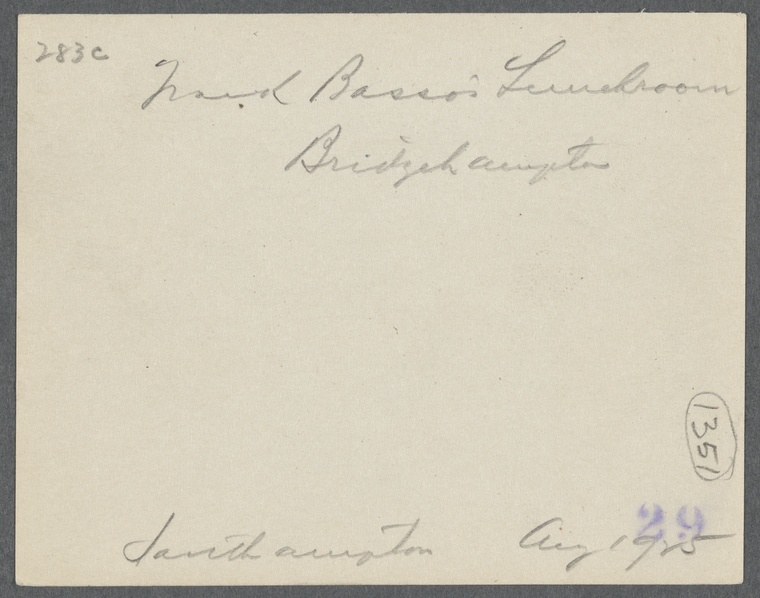 283c
Frank Basso's Lunchroom
Bridgehampton
1351
29
Southampton Aug 1925